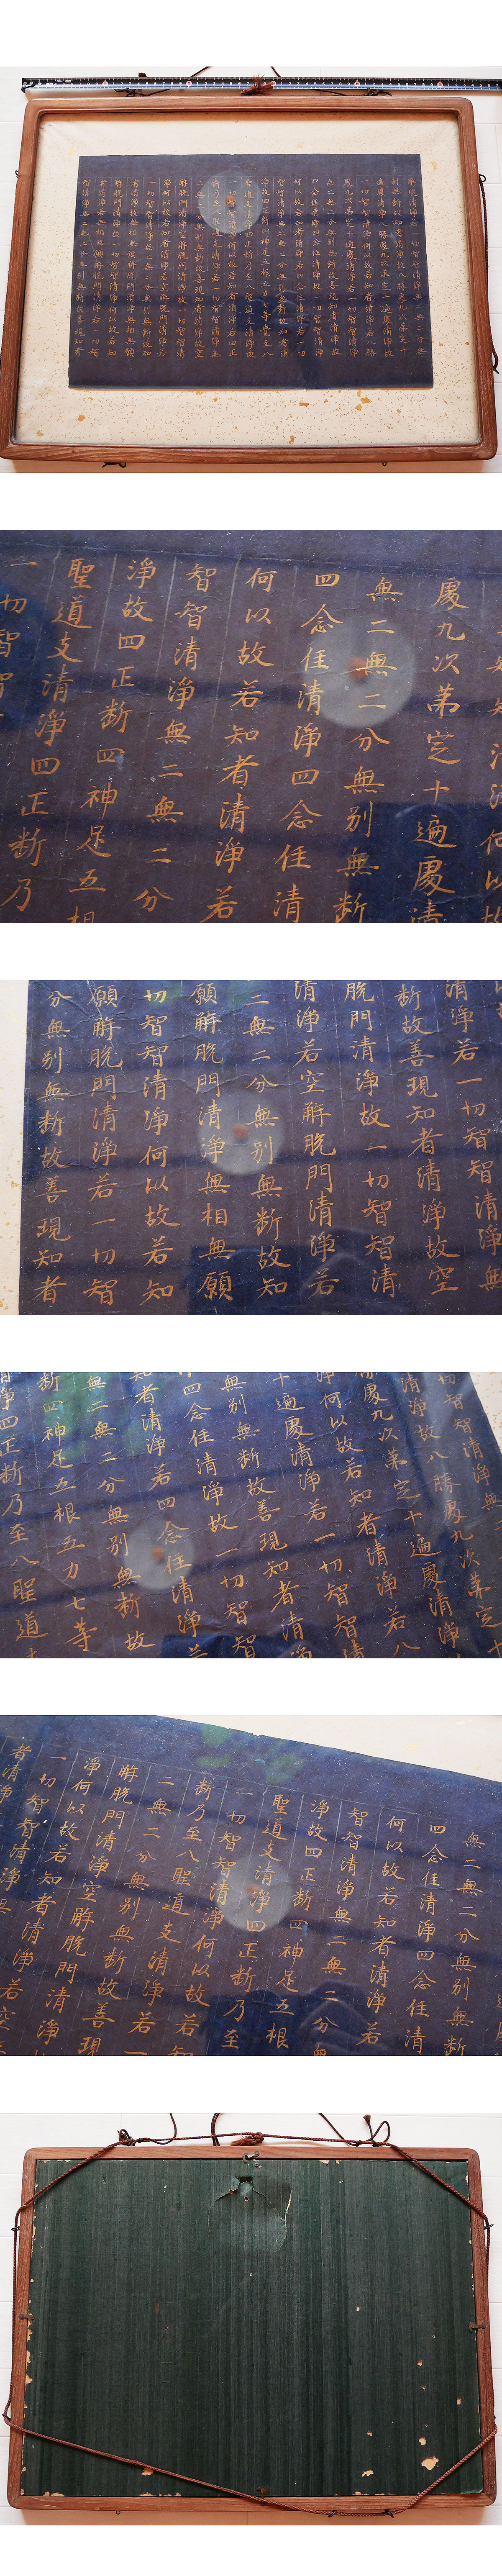 解脫清淨若一切智智清淨無二無二分無
別無斷故知者清淨故八勝處九次第定十
遍處清淨八勝處九次第定十遍處清淨故
一切智智清淨何以故若知者清淨若八勝
處九次第定十遍處清淨若一切智智清淨
無二無二分無別無斷故善現知者清淨故
四念住清淨四念住清淨故一切智智清淨
何以故若知者清淨若四念住清淨若一切
智智清淨無二無二分無別無斷故知者清
淨故四正斷四神足五根五力七等覺支八
聖道支清淨四正斷乃至八聖道支清淨故
一切智智清淨何以故若知者清淨若四正
斷乃至八聖道支清淨若一切智智清淨無
二無二分無別無斷故善現知者清淨故空
解脫門清淨空解脫門清淨故一切智智清
淨何以故若知者清淨若空解脫門清淨若
一切智智清淨無二無二分無別無斷故知
者清淨故無相無願解脫門清淨無相無願
解脫門清淨故一切智智清淨何以故若知
者清淨若無相無願解脫門清淨若一切智
智清淨無二無二分無別無斷故善現知者